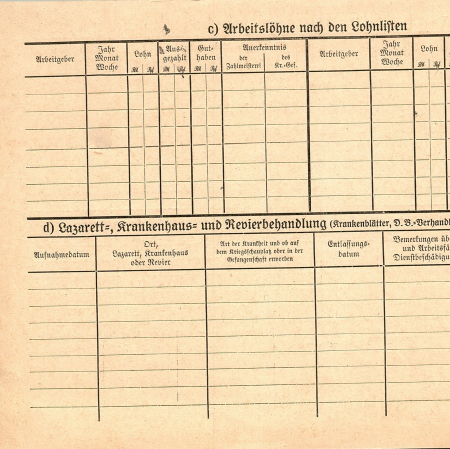 c) Arbeitslöhne nach den Lohnlisten
Arbeitgeber
Jahr
Monat
Woche
Lohn
Aus-
gezahlt
Gut-
haben
Anerkenntnis
der
Zahlmeisterei
des
Kr.-Gef.
Arbeitgeber
Jahr
Monat
Woche
Lohn
d) Lazarett-, Krankenhaus- und Revierbehandlung (Krankenblätter, D.B.-Verhandl
Aufnahmedatum
Ort,
Lazarett, Krankenhaus
oder Revier
Art der Krankheit und ob auf
dem Kriegsschauplatz oder in der
Gefangenschaft erworben
Entlassungs-
datum
Bemerkungen üb
und Arbeitsfä
Dienstbeschädigu